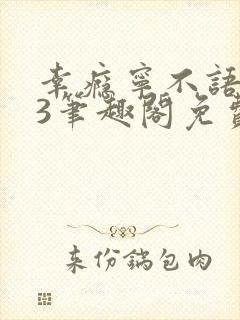 幸瘾寧不語
3筆趣閣免費
来份鍋包肉